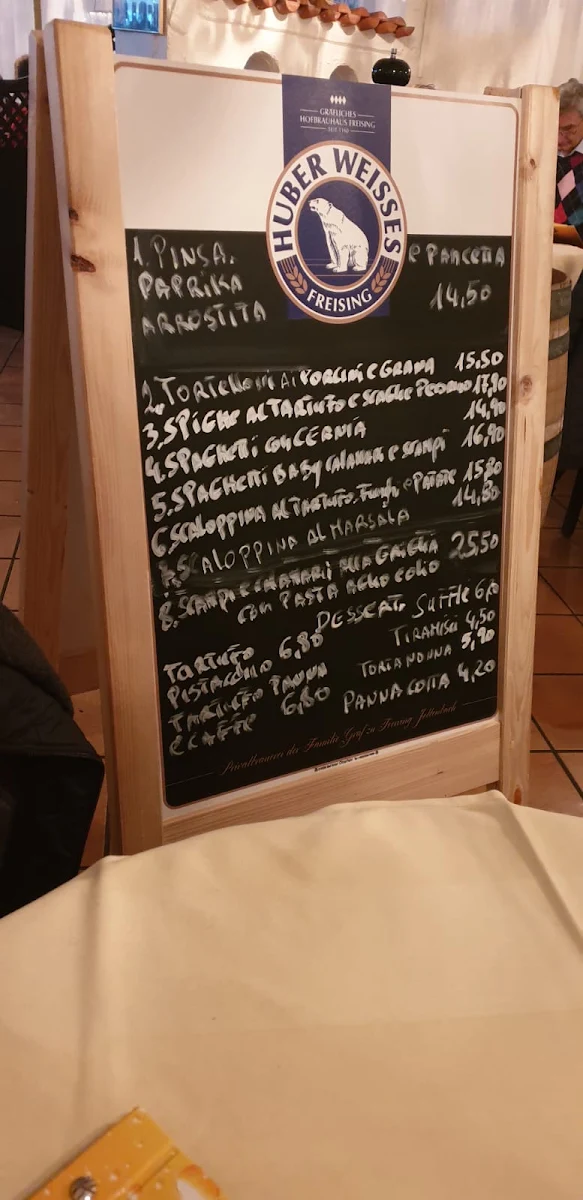 GRÄFLICHES
HOFBRAUHAUS FREISING
SEIT 1160
HUBER WEISSES
FREISING
1. PINSA. e PANCETTA
PAPRIKA 14,50
ARROSTITA
2. TORTELLONI AI PORCINI e GRANA 15,50
3. SPIGHE AL TARTUFO e SCAGLIE 17,90
4. SPAGHETTI CON CERNIA 14,90
5. SPAGHETTI BABY CALAMARI e SCAMPI 16,90
6. SCALOPPINA AL TARTUFO, Funghi e PATATE 15,80
7. SCALOPPINA AL MARSALA 14,80
8. SCAMPI e CALAMARI ALLA GRIGLIA 25,50
CON PASTA AGLIO E OLIO
DESSERT, SUFFLE
TARTUFO 6,80 TIRAMISU 4,50
PISTACCHIO TORTA NONNA 5,90
TARTUFFO PANNA PANNA COTTA 4,20
e CAFFE 6,80
Privatbrauerei der Familie Graf zu Toerring-Jettenbach